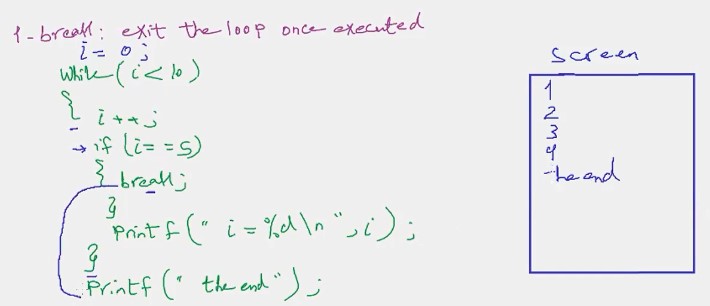 1-break: exit the loop once executed
i = 0;
while (i < 10)
{ i++;
→ if (i == 5)
{ break;
}
printf(" i = %d\n", i);
}
printf(" the end");
screen
1
2
3
4
the end